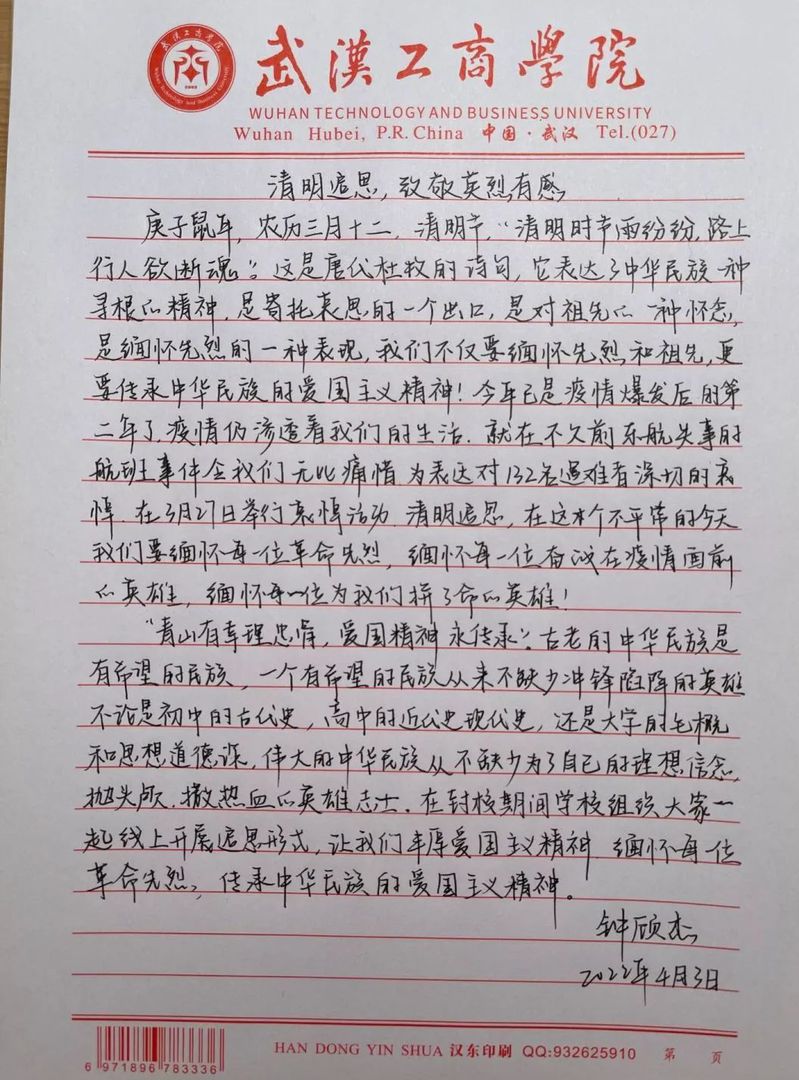 武漢工商學院
WUHAN TECHNOLOGY AND BUSINESS UNIVERSITY
Wuhan Hubei, P.R. China 中国·武汉 Tel.(027)
清明追思，致敬英烈有感
庚子鼠年，农历三月十二，清明节，“清明时节雨纷纷，路上
行人欲断魂”。这是唐代杜牧的诗句，它表达了中华民族一种
寻根的精神，是寄托哀思的一个出口，是对祖先的一种怀念，
是缅怀先烈的一种表现，我们不仅要缅怀先烈和祖先，更
要传承中华民族的爱国主义精神！今年已是疫情爆发后的第
二年了，疫情仍渗透着我们的生活．就在不久前东航失事的
航班事件令我们无比痛惜为表达对132名遇难者深切的哀
悼．在3月27日举行哀悼活动．清明追思，在这个不平常的今天
我们要缅怀每一位革命先烈，缅怀每一位奋战在疫情面前
的英雄，缅怀每一位为我们拼了命的英雄！
“青山有幸埋忠骨，爱国精神永传承”。古老的中华民族是
有希望的民族，一个有希望的民族从来不缺少冲锋陷阵的英雄
不论是初中的古代史，高中的近代史现代史，还是大学的毛概
和思想道德课，伟大的中华民族从不缺少为了自己的理想信念，
抛头颅．撒热血的英雄志士．在封校期间学校组织大家一
起线上开展追思形式，让我们丰厚爱国主义精神．缅怀每一位
革命先烈，传承中华民族的爱国主义精神。
钟颀杰
2022年4月3日
6 971896 783336
HAN DONG YIN SHUA 汉东印刷 QQ:932625910 第 页